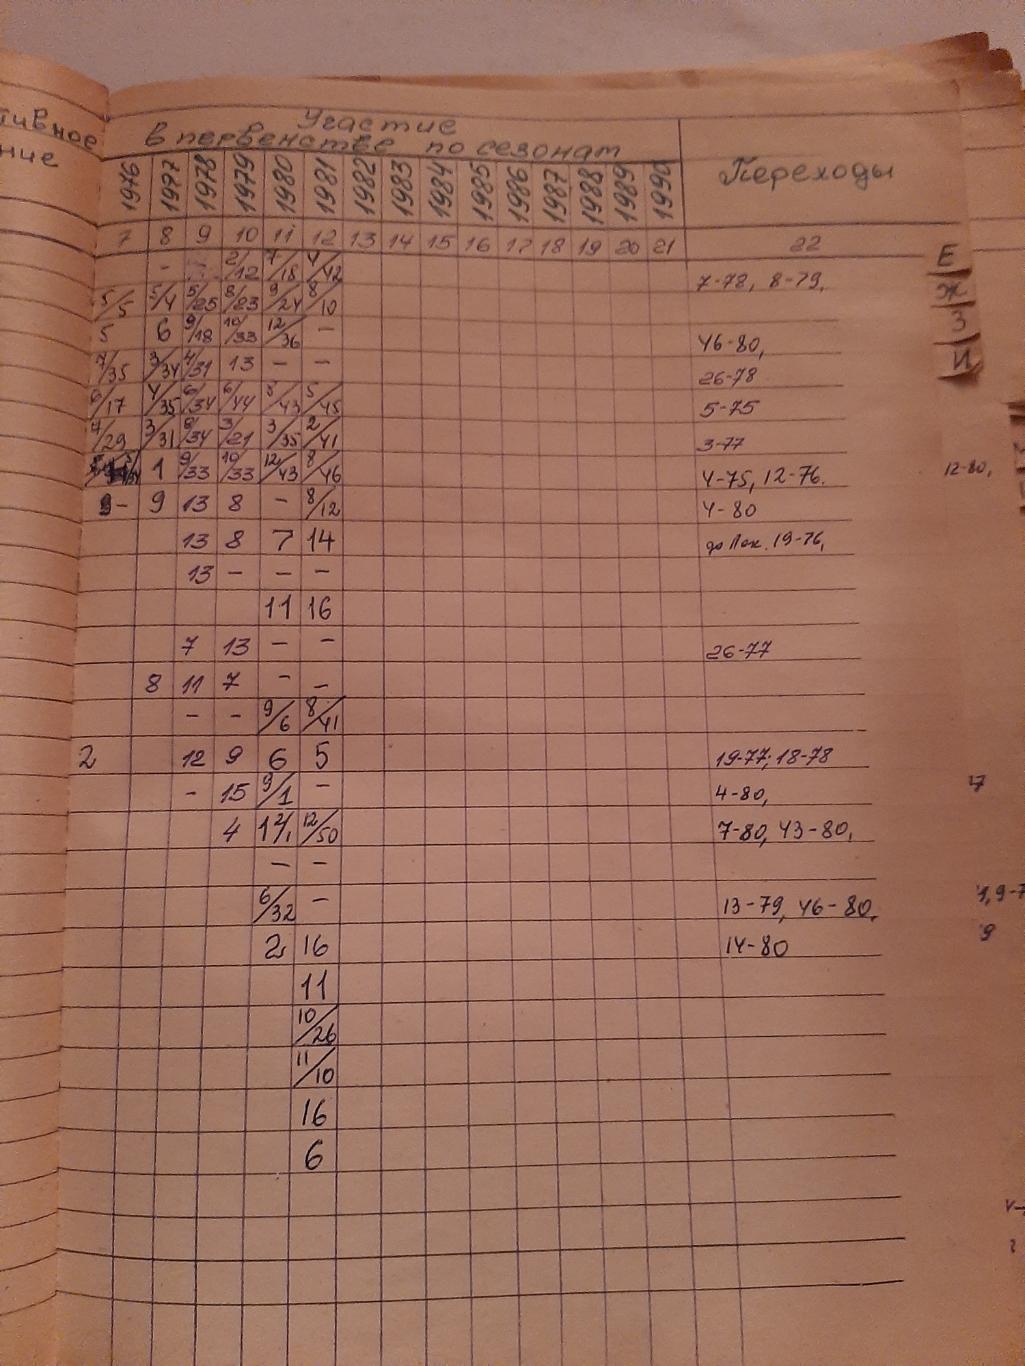 тивное
ние
Участие
в первенстве по сезонам
Переходы
1976 1977 1978 1979 1980 1981 1982 1983 1984 1985 1986 1987 1988 1989 1990
7 8 9 10 11 12 13 14 15 16 17 18 19 20 21 22
- 2/12 7/18 4/42 7-78, 8-79,
5/5 5/4 5/25 8/23 9/24 8/10
5 6 9/18 10/33 12/36 - 46-80,
7/35 3/34 4/31 13 - - 26-78
6/17 4/35 6/34 6/44 8/43 5/45 5-75
7/29 3/31 8/34 3/21 3/35 2/41 3-77
1 9/33 10/33 12/43 8/46 4-75, 12-76. 12-80,
9 - 9 13 8 - 8/12 4-80
13 8 7 14 до Лок. 19-76,
13 - - -
11 16
7 13 - - 26-77
8 11 7 - -
- - 9/6 8/41
2 12 9 6 5 19-77, 18-78
- 15 9/1 - 4-80,
4 12/1 12/50 7-80, 43-80,
- -
6/32 - 13-79, 46-80,
2 16 14-80
11
10/26
11/10
16
6
Е
Ж
З
И